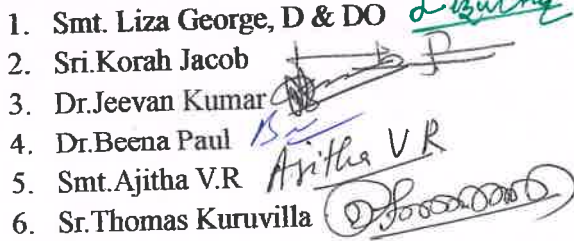 1. Smt. Liza George, D & DO
2. Sri.Korah Jacob
3. Dr.Jeevan Kumar
4. Dr.Beena Paul
5. Smt.Ajitha V.R Ajitha V R
6. Sr.Thomas Kuruvilla